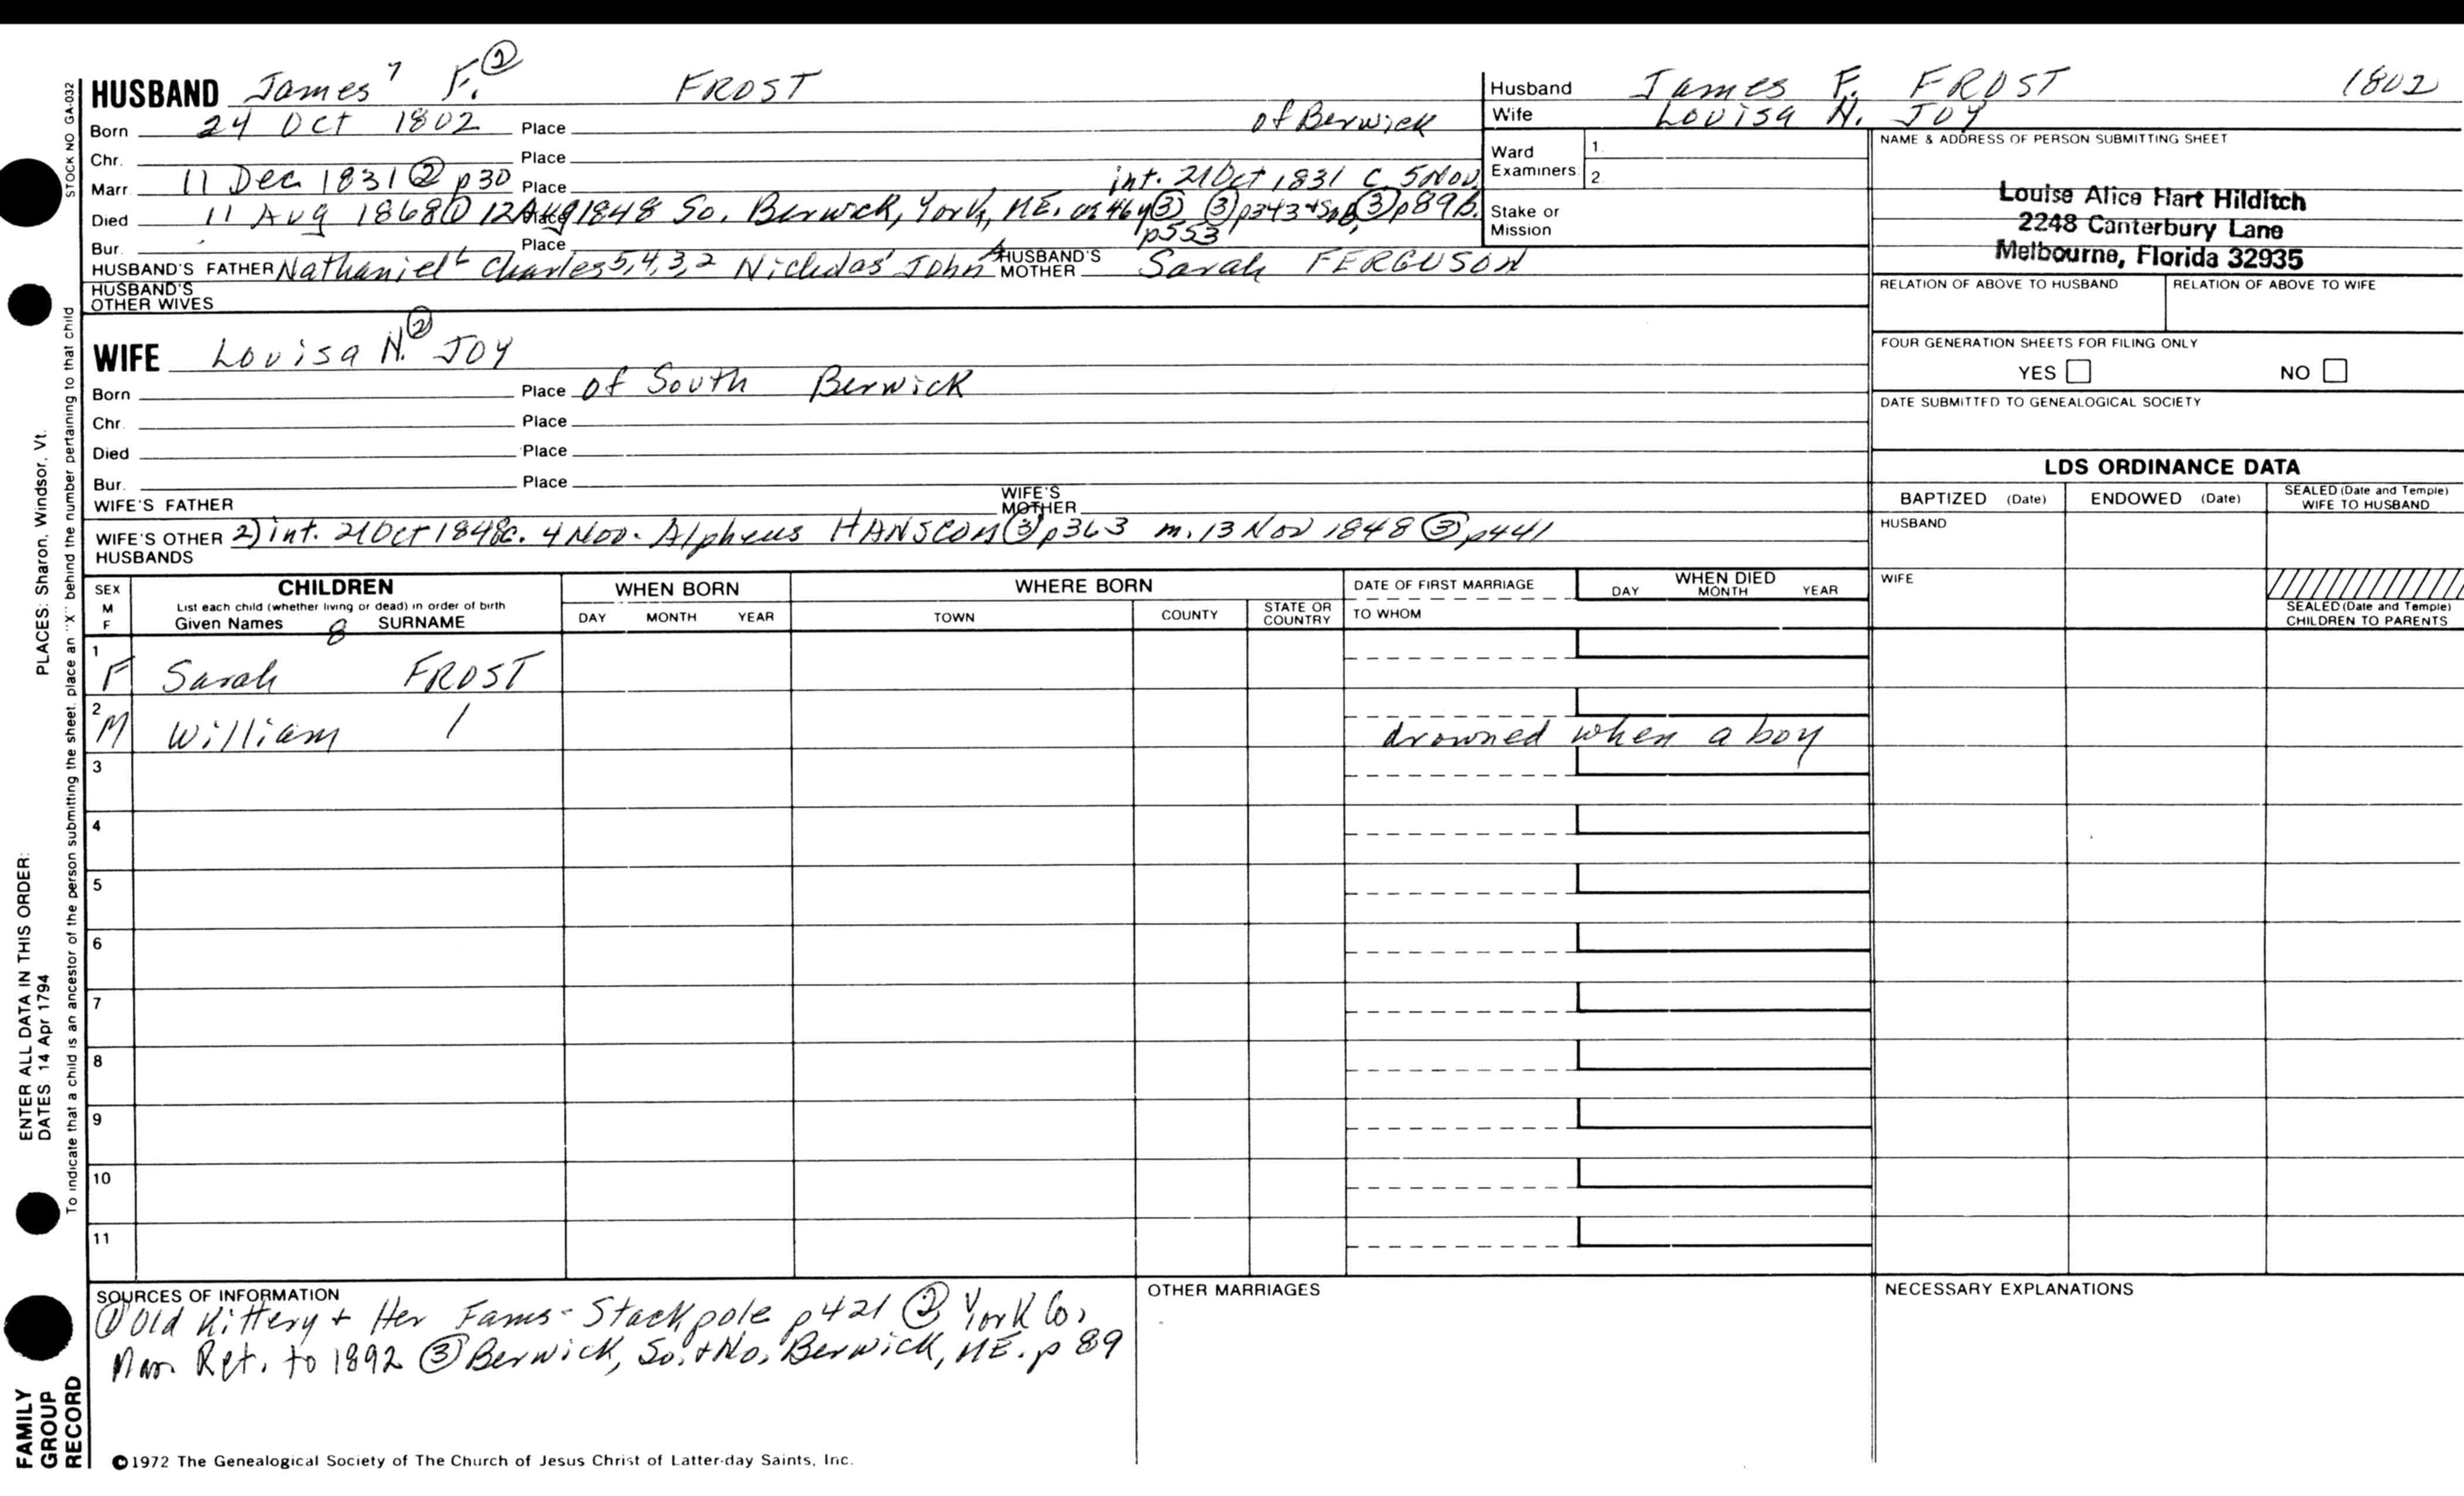 HUSBAND James 7 F. ② FROST
Born 24 Oct 1802 Place of Berwick
Chr. Place
Marr. 11 Dec 1831 ② p30 Place int. 21 Oct 1831 c. 5 Nov
Died 11 Aug 1868 ① 12 Aug 1848 So. Berwick, York, ME. 46y ③ ③ p343 ③ p89
p553
Bur. Place
HUSBAND'S FATHER Nathaniel 6 Charles 5,4,3,2 Nicholas' John A HUSBAND'S MOTHER Sarah FERGUSON
HUSBAND'S OTHER WIVES
WIFE Louisa N. ② JOY
Born Place of South Berwick
Chr. Place
Died Place
Bur. Place
WIFE'S FATHER WIFE'S MOTHER
WIFE'S OTHER HUSBANDS 2) int. 21 Oct 1848 c. 4 Nov. Alpheus HANSCOM ③ p363 m. 13 Nov 1848 ③ p441
Husband James F. FROST 1802
Wife Louisa N. JOY
Ward Examiners: 1. 2.
Stake or Mission
NAME & ADDRESS OF PERSON SUBMITTING SHEET
Louise Alice Hart Hilditch
2248 Canterbury Lane
Melbourne, Florida 32935
RELATION OF ABOVE TO HUSBAND RELATION OF ABOVE TO WIFE
FOUR GENERATION SHEETS FOR FILING ONLY
YES NO
DATE SUBMITTED TO GENEALOGICAL SOCIETY
LDS ORDINANCE DATA
BAPTIZED (Date) ENDOWED (Date) SEALED (Date and Temple) WIFE TO HUSBAND
HUSBAND
WIFE
SEALED (Date and Temple) CHILDREN TO PARENTS
SEX M F CHILDREN WHEN BORN WHERE BORN DATE OF FIRST MARRIAGE WHEN DIED
List each child (whether living or dead) in order of birth
Given Names 8 SURNAME DAY MONTH YEAR TOWN COUNTY STATE OR COUNTRY TO WHOM DAY MONTH YEAR
1 F Sarah FROST
2 M William / drowned when a boy
3
4
5
6
7
8
9
10
11
SOURCES OF INFORMATION
① Old Kittery + Her Fams - Stackpole p421 ② York Co,
Marr. Ret. to 1892 ③ Berwick, So. + No. Berwick, ME. p 89
OTHER MARRIAGES
NECESSARY EXPLANATIONS
©1972 The Genealogical Society of The Church of Jesus Christ of Latter-day Saints, Inc.
STOCK NO GA-032
To indicate that a child is an ancestor of the person submitting the sheet, place an "X" behind the number pertaining to that child
PLACES: Sharon, Windsor, Vt.
ENTER ALL DATA IN THIS ORDER:
DATES 14 Apr 1794
FAMILY
GROUP
RECORD